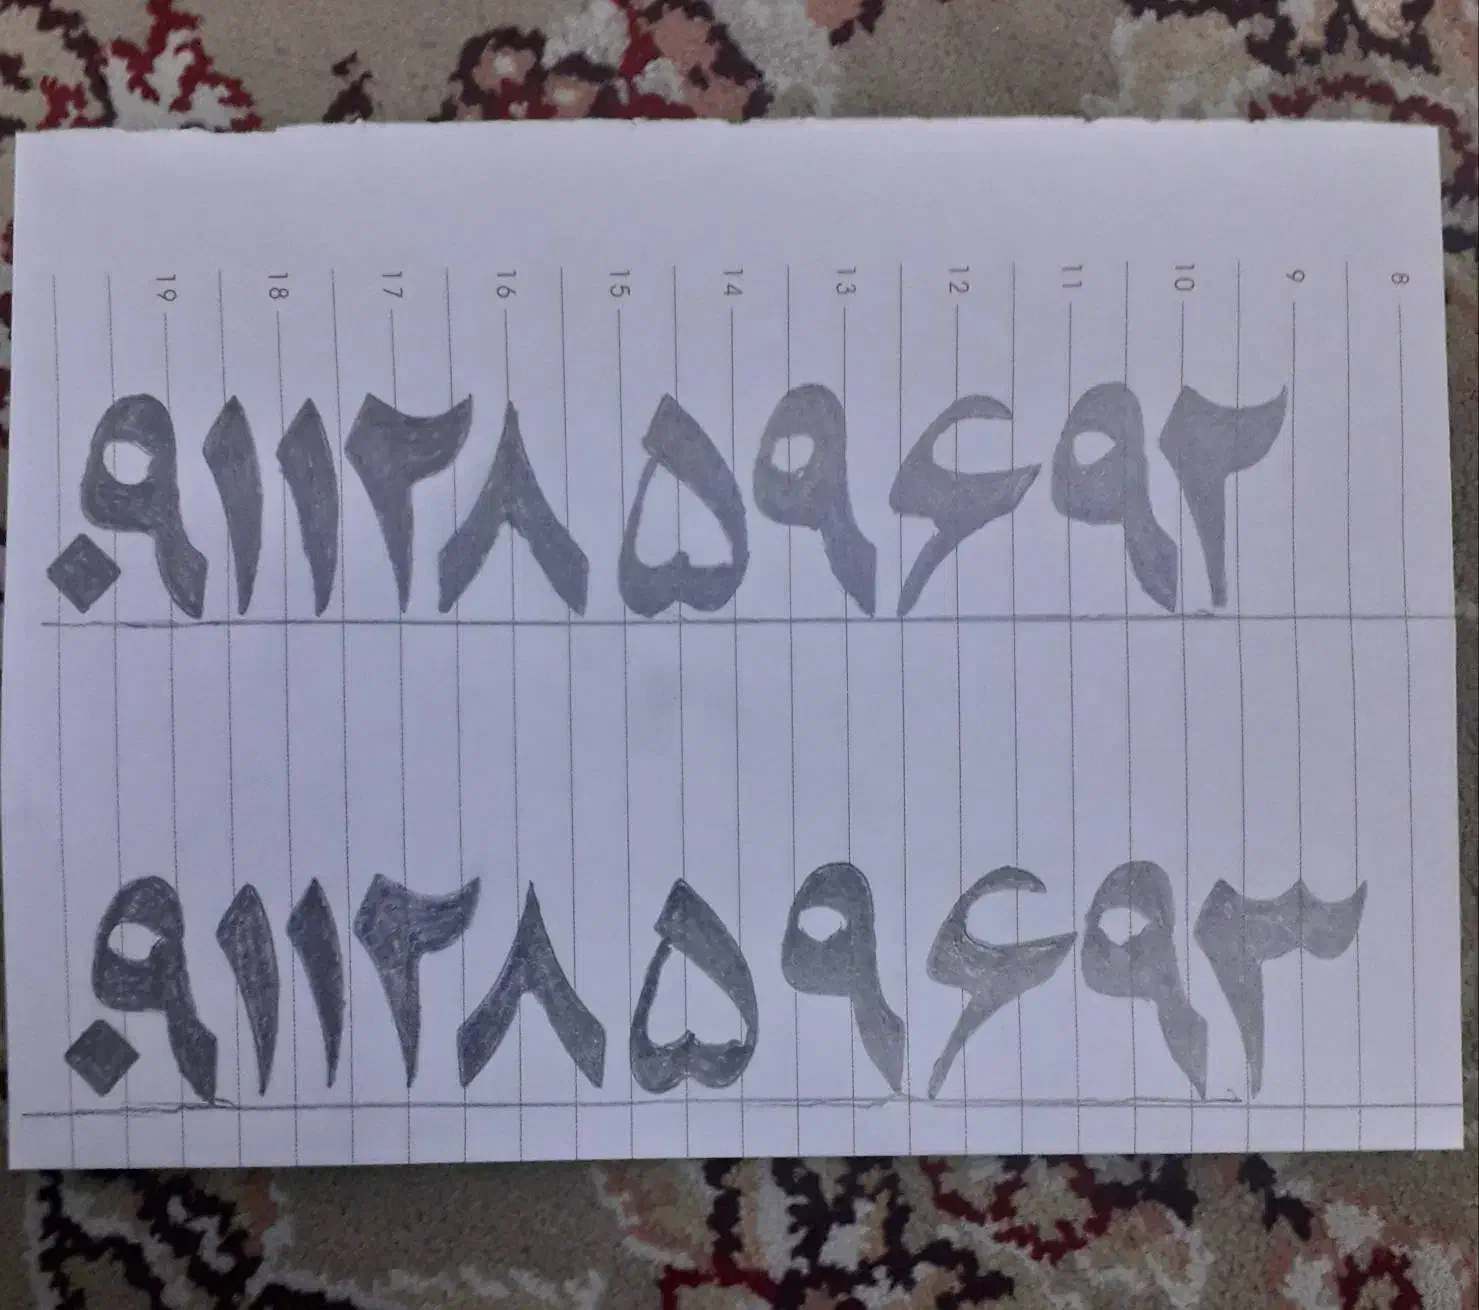 19 18 17 16 15 14 13 12 11 10 9 8
۰۹۱۱۲۸۵۹۶۹۲
۰۹۱۱۲۸۵۹۶۹۳